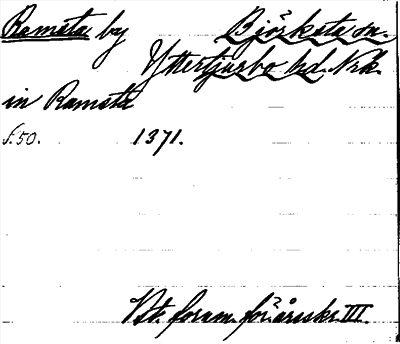 Ramsta by Björksta sn.
Yttertjurbo hd. Vstm.
in Ramsta
s. 50. 1371.
Vst. fornm. för. årsskr. III.